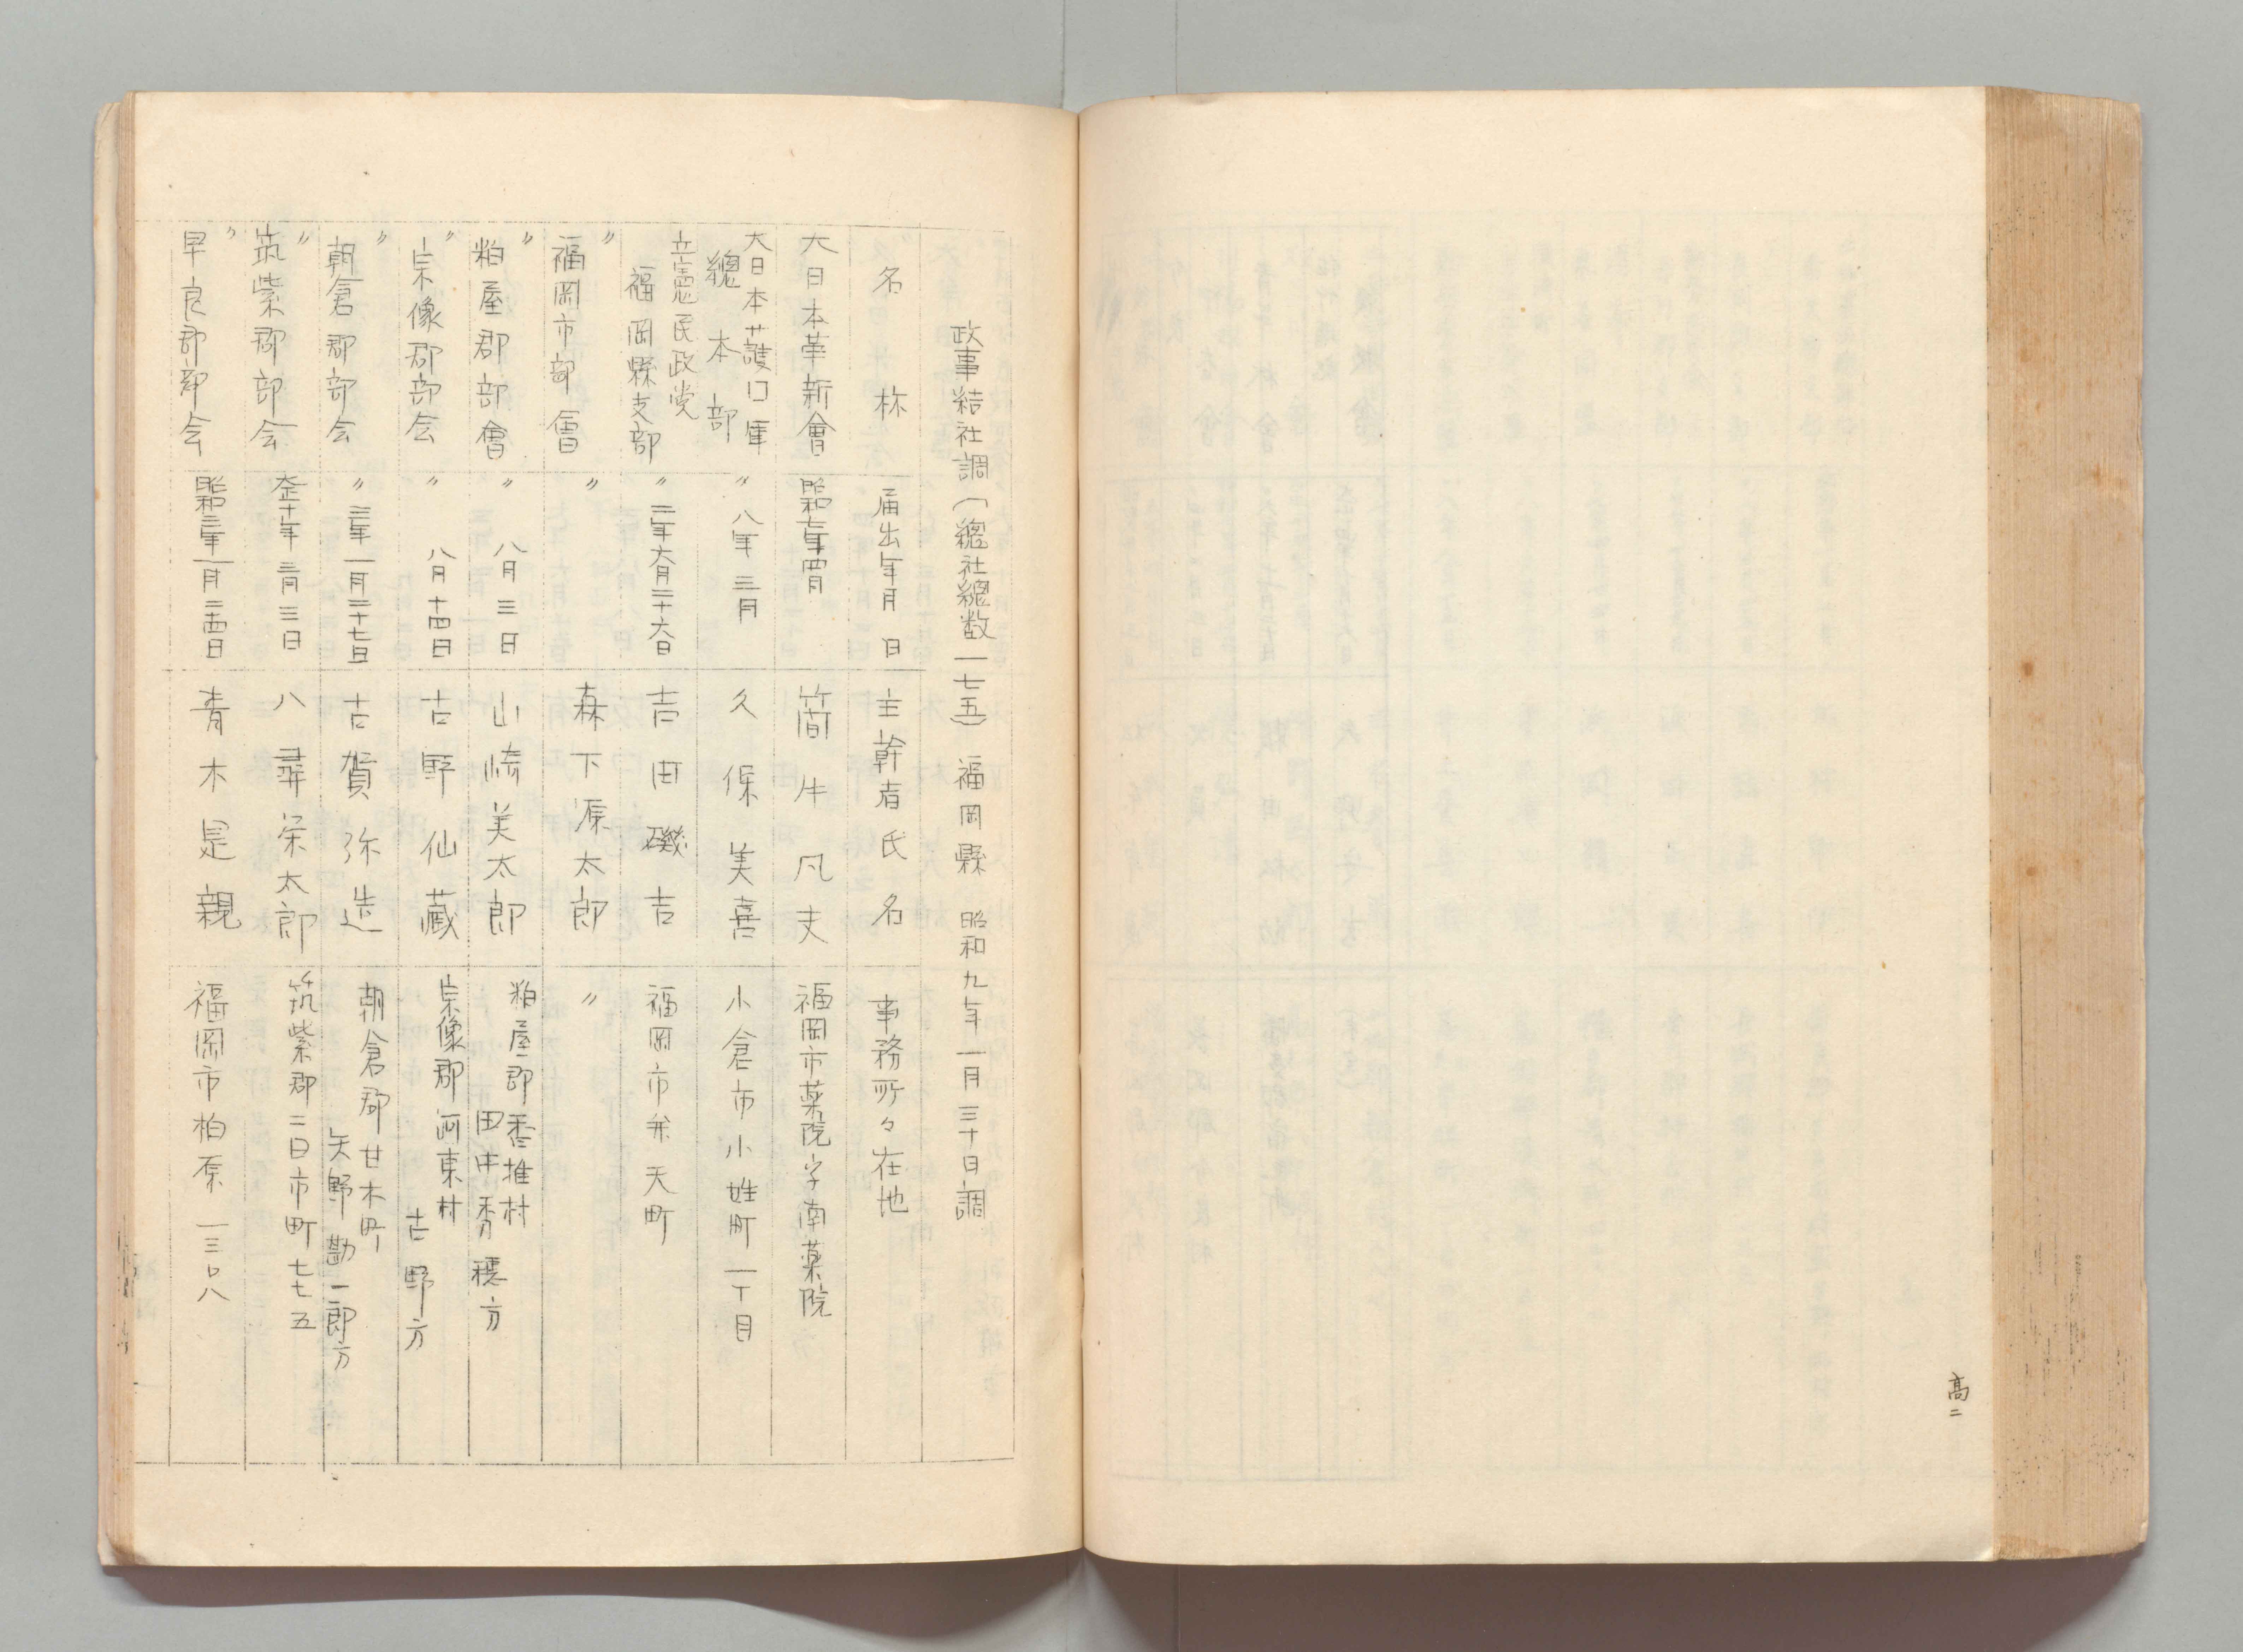 高二
政事結社調(總社總数一七五) 福岡縣 昭和九年一月三十日調
名称 届出年月日 主幹者氏名 事務所々在地
大日本革新會 昭和七年四月 簡牛凡夫 福岡市薬院字南薬院
大日本護口軍
總本部 〃八年三月 久保美喜 小倉市小姓町一丁目
立憲民政党
福岡縣支部 〃二年六月二十六日 吉田磯吉 福岡市弁天町
〃
福岡市部會 〃 森下源太郎 〃
〃
粕屋郡部會 〃八月三日 山崎美太郎 粕屋郡香椎村
田中秀穂方
〃
宗像郡部会 〃八月十四日 古野仙蔵 宗像郡河東村
古野方
〃
朝倉郡部会 〃三年一月二十七日 古賀弥造 朝倉郡甘木町
矢野勘二郎方
〃
筑紫郡部会 大正十年三月三日 八尋栄太郎 筑紫郡二日市町七七五
〃
早良郡部会 昭和三年一月二十四日 青木是親 福岡市柏原一三〇八